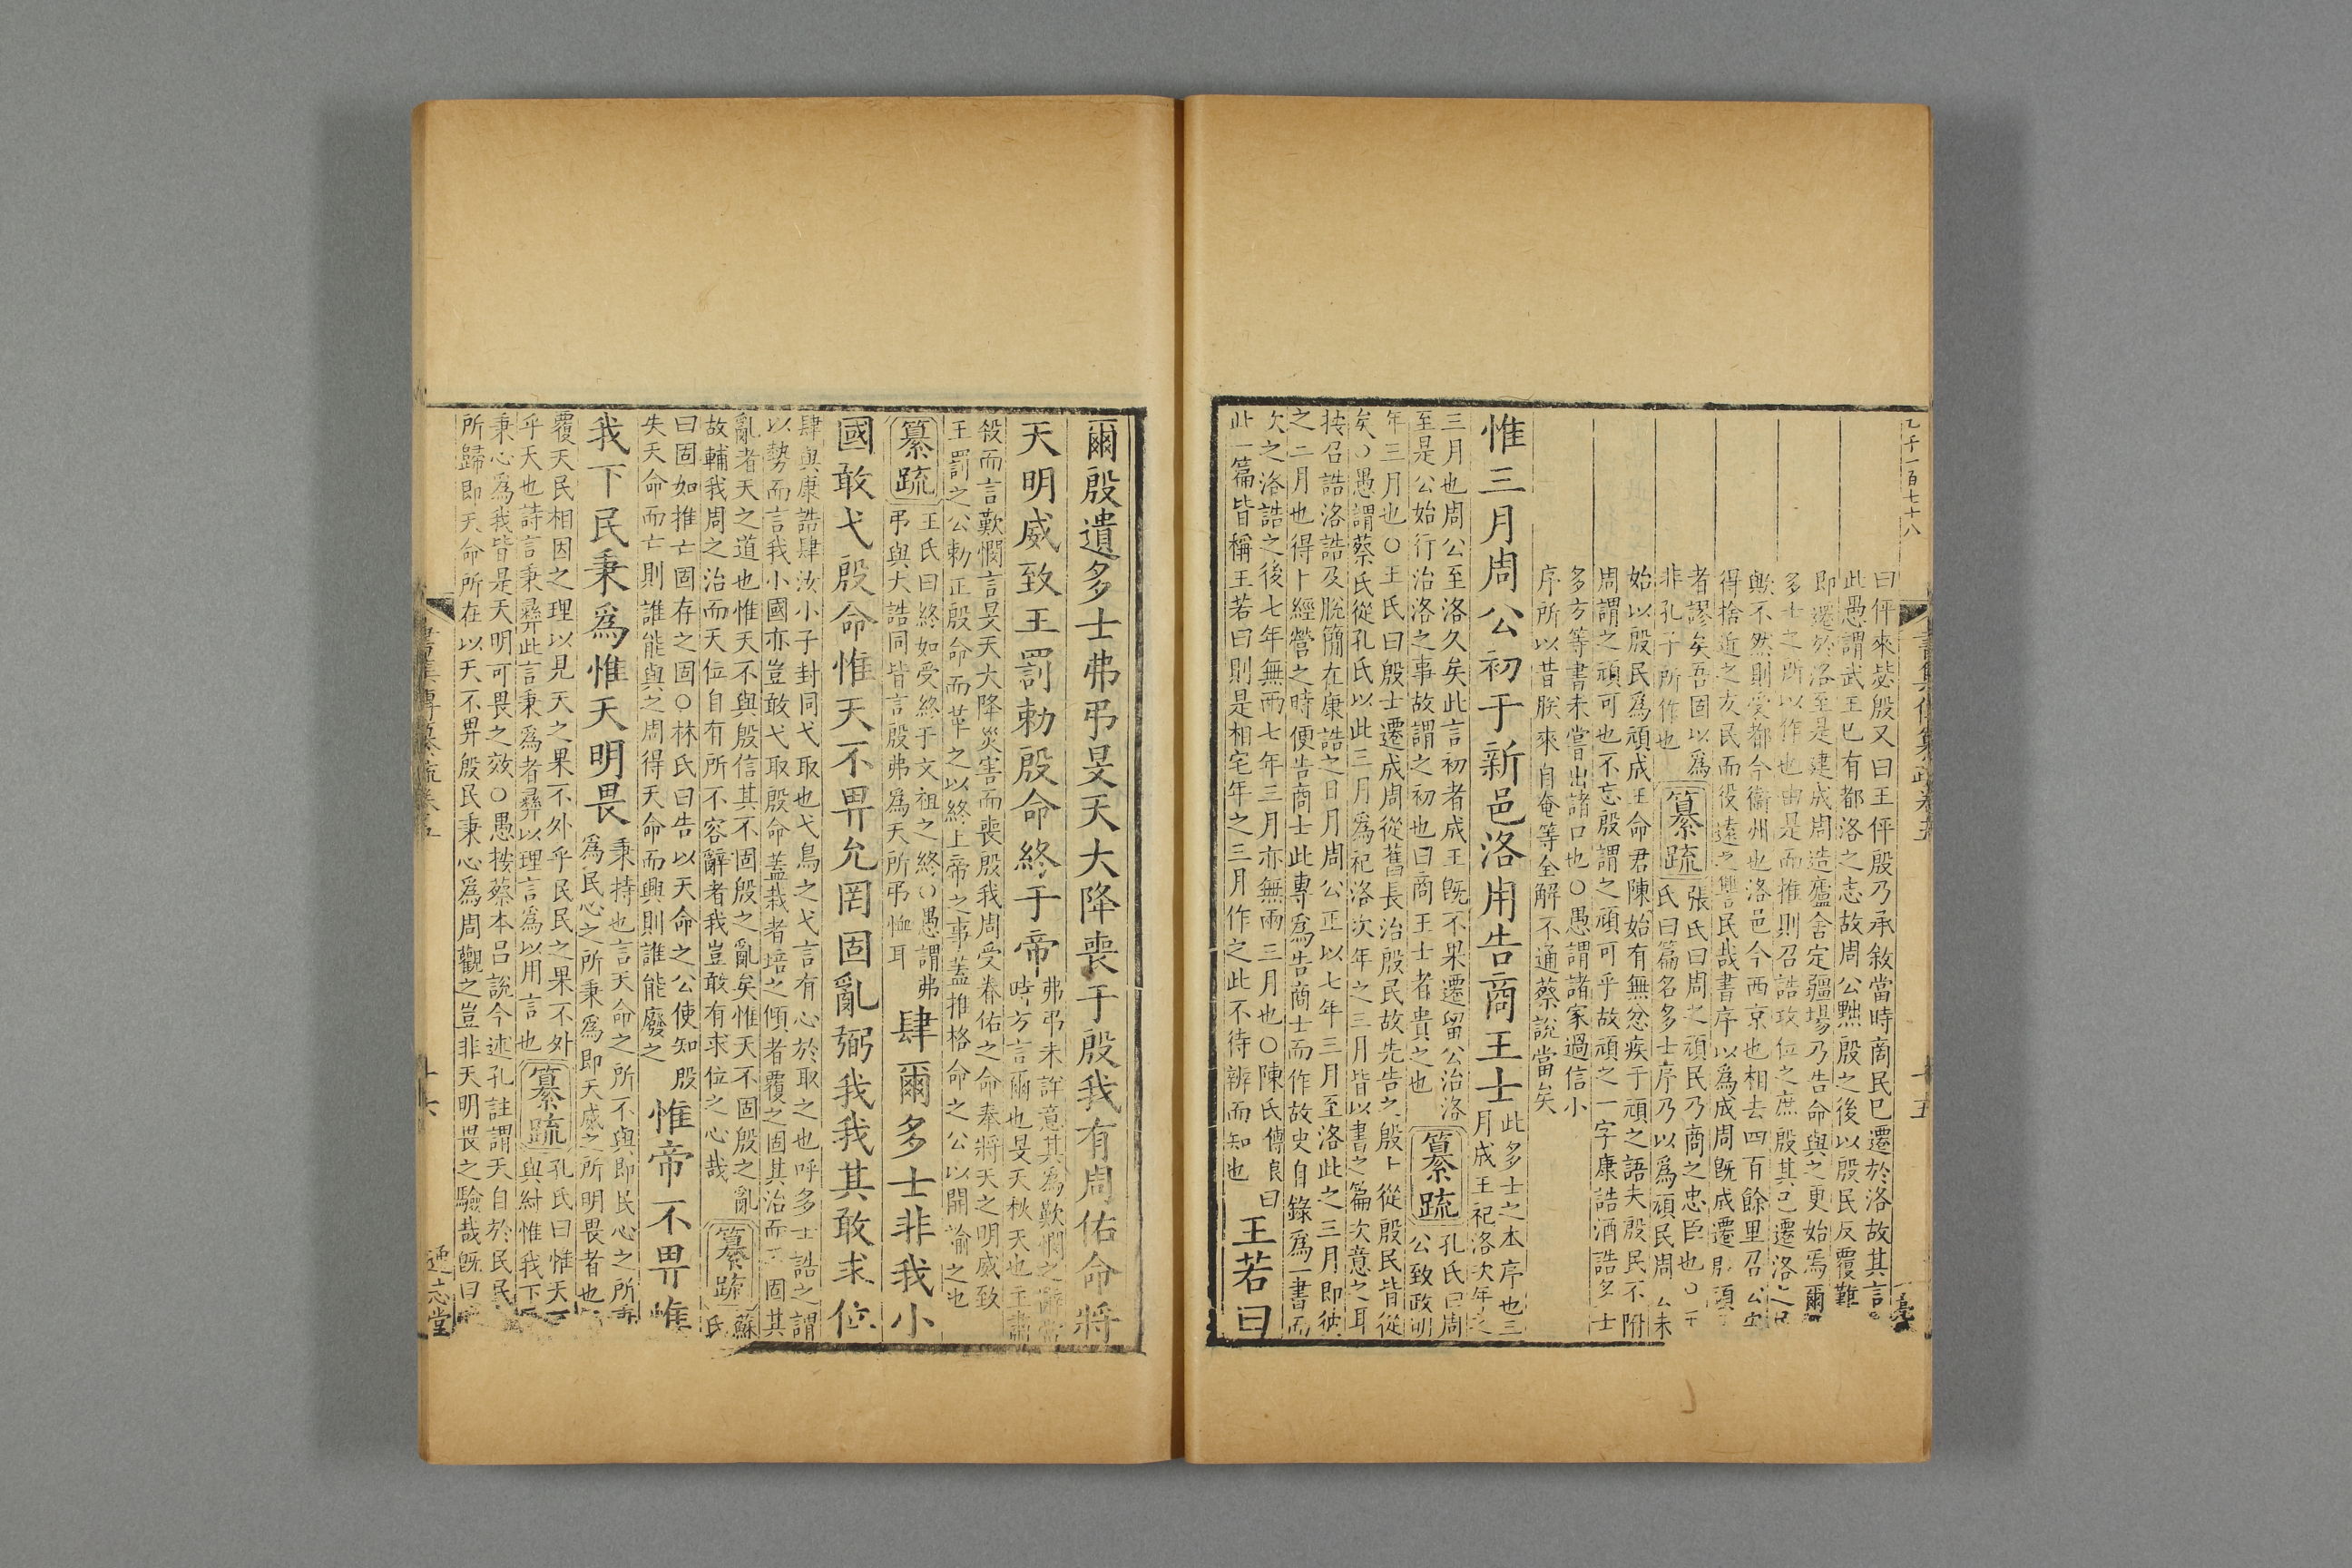 曰伻來毖殷又曰王伻殷乃承敘當時商民已遷於洛故其言
此愚謂武王已有都洛之志故周公黜殷之後以殷民反覆難
即遷於洛至是建成周造廬舍定疆場乃告命與之更始焉爾
多士之所以作也由是而推則召誥攻位之庶殷其已遷洛之民
歟不然則受都今衞州也洛邑今西京也相去四百餘里召公安
得捨近之友民而役遠之讐民哉書序以為成周既成遷
者謬矣吾固以為
非孔子所作也
纂疏
張氏曰周之頑民乃商之忠臣也○
氏曰篇名多士序乃以為頑民周公未
始以殷民為頑成王命君陳始有無忿疾于頑之語夫殷民不附
周謂之頑可也不忘殷謂之頑可乎故頑之一字康誥酒誥多士
多方等書未嘗出諸口也○愚謂諸家過信小
序所以昔朕來自奄等全解不通蔡說當矣
惟三月周公初于新邑洛用告商王士
此多士之本序也三
月成王祀洛次年之
三月也周公至洛久矣此言初者成王既不果遷留公治洛
至是公始行治洛之事故謂之初也曰商王士者貴之也
纂疏
孔氏曰周
公致政明
年三月也○王氏曰殷士遷成周從舊長治殷民故先告之殷卜從殷民皆從
矣○愚謂蔡氏從孔氏以此三月為祀洛次年之三月皆以書之篇次意之耳
按召誥洛誥及脫簡在康誥之日月周公正以七年三月至洛此之三月即彼
之二月也得卜經營之時便告商士此專為告商士而作故史自錄為一書而
次之洛誥之後七年無兩七年三月亦無兩三月也○陳氏傅良曰
此一篇皆稱王若曰則是相宅年之三月作之此不待辨而知也
王若曰
爾殷遺多士弗弔旻天大降喪于殷我有周佑命將
天明威致王罰勅殷命終于帝
弗弔未詳意其為歎憫之辭當
時方言爾也旻天秋天也主肅
殺而言歎憫言旻天大降災害而喪殷我周受眷佑之命奉將天之明威致
王罰之公勅正殷命而革之以終上帝之事蓋推格命之公以開諭之也
纂疏
王氏曰終如受終于文祖之終○愚謂弗
弔與大誥同皆言殷弗為天所弔恤耳
肆爾多士非我小
國敢弋殷命惟天不畀允罔固亂弼我我其敢求位
肆與康誥肆汝小子封同弋取也弋鳥之弋言有心於取之也呼多士誥之謂
以勢而言我小國亦豈敢弋取殷命蓋栽者培之傾者覆之固其治而不固其
亂者天之道也惟天不與殷信其不固殷之亂矣惟天不固殷之亂
故輔我周之治而天位自有所不容辭者我豈敢有求位之心哉
纂疏
蘇氏
曰固如推亡固存之固○林氏曰告以天命之公使知殷
失天命而亡則誰能與之周得天命而興則誰能廢之
惟帝不畀惟
我下民秉為惟天明畏
秉持也言天命之所不與即民心之所秉
為民心之所秉為即天威之所明畏者也
覆天民相因之理以見天之果不外乎民民之果不外
乎天也詩言秉彝此言秉為者彝以理言為以用言也
纂疏
孔氏曰惟天
與紂惟我下
秉心為我皆是天明可畏之效○愚按蔡本呂說今述孔註謂天自於民民
所歸即天命所在以天不畀殷民秉心為周觀之豈非天明畏之驗哉既曰
通志堂